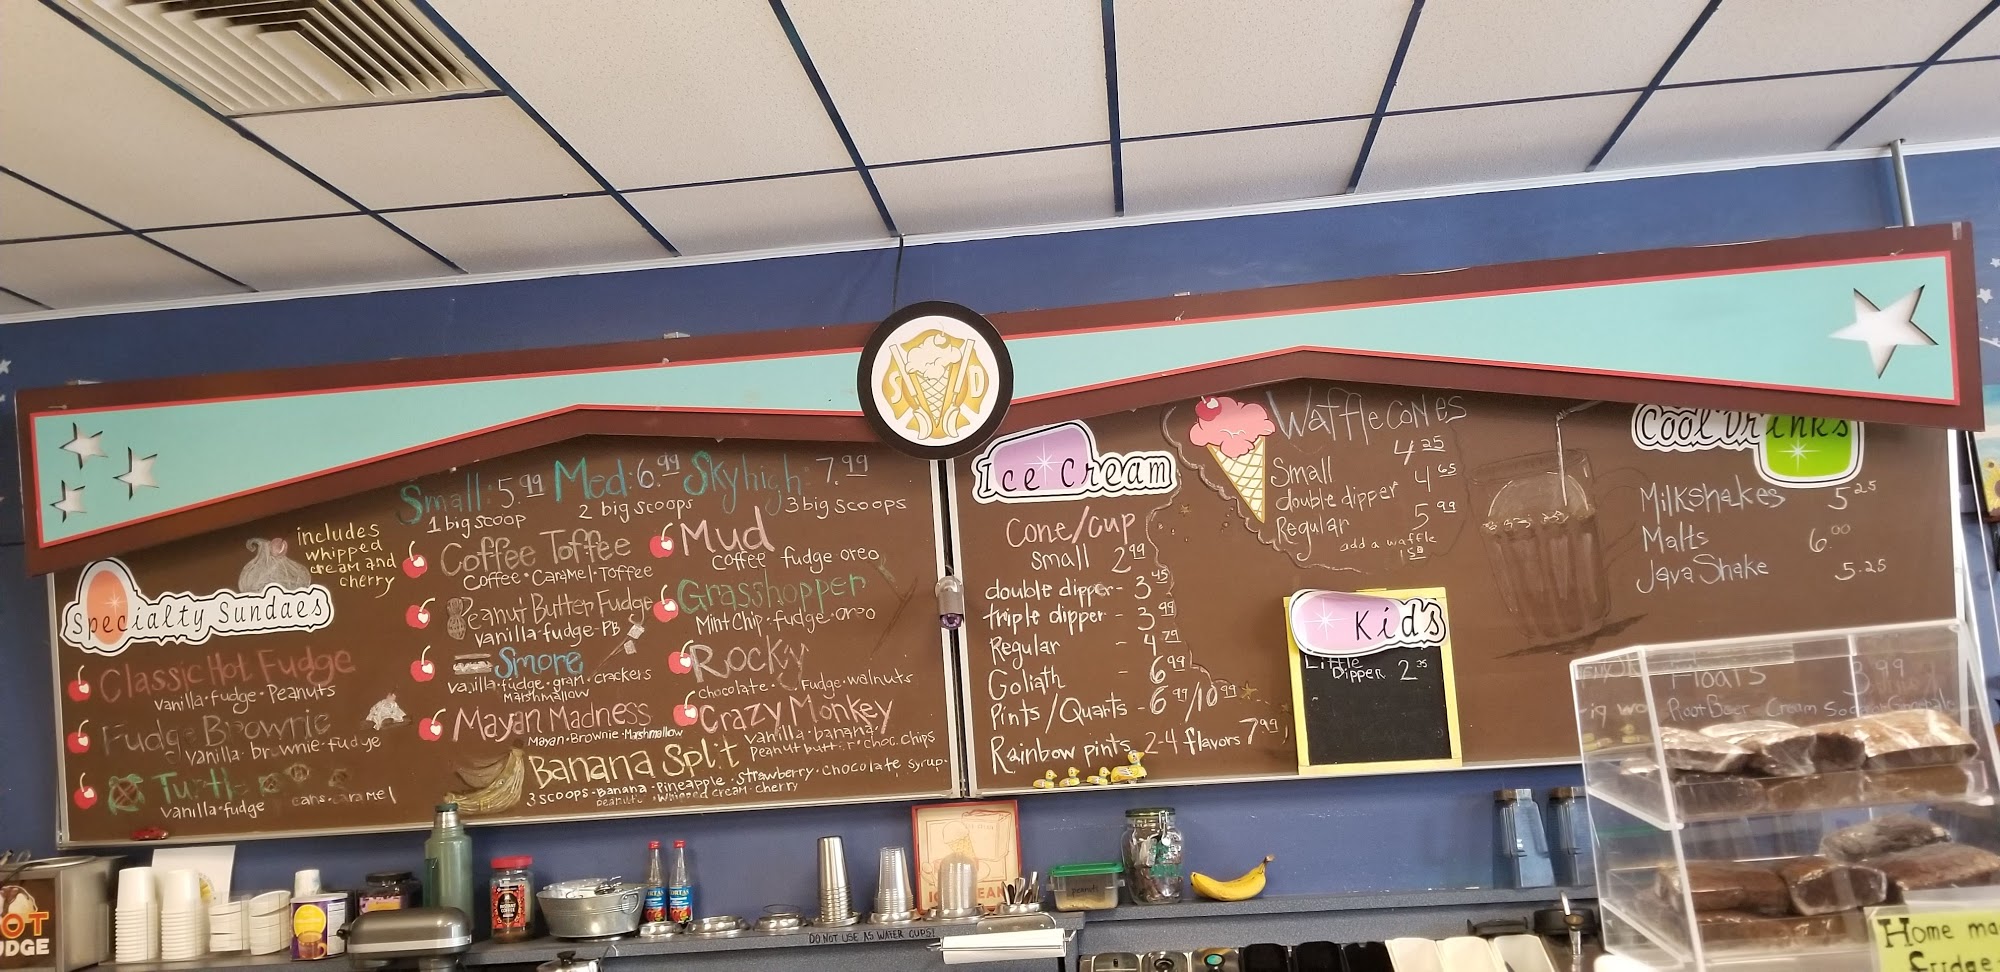 Small: 5.99 Med: 6.99 Sky high: 7.99
1 big scoop 2 big scoops 3 big scoops
includes
whipped
cream and
cherry
Specialty Sundaes
Classic Hot Fudge
vanilla · fudge · Peanuts
Fudge Brownie
vanilla · brownie · fudge
Turtle
vanilla · fudge
caramel
Coffee Toffee
Coffee · Caramel · Toffee
Peanut Butter Fudge
vanilla · fudge · PB
Smore
vanilla · fudge · gram · crackers
Marshmallow
Mayan Madness
Mayan · Brownie · Mashmallow
Mud
Coffee fudge oreo
Grasshopper
Mint Chip · fudge · oreo
Rocky
chocolate · Fudge · walnuts
Crazy Monkey
vanilla · banana ·
Peanut butter · choc. chips
Banana Split
3 scoops · Banana · Pineapple · Strawberry · chocolate syrup ·
peanuts · whipped cream · cherry
S D
Ice Cream
Cone/cup
small 2.99
double dipper - 3.45
triple dipper - 3.99
Regular - 4.79
Goliath - 6.99
Pints/Quarts - 6.99/10.99
Rainbow pints 2-4 flavors 7.99
Waffle cones
Small 4.25
double dipper 4.65
Regular 5.99
add a waffle
1.50
Kid's
Little
Dipper 2.35
Cool Drinks
Milkshakes 5.25
Malts 6.00
Java Shake 5.25
Floats 3.99
Root Beer Cream Soda
HOT
FUDGE
peanuts
DO NOT USE AS WATER CUPS!
Home ma